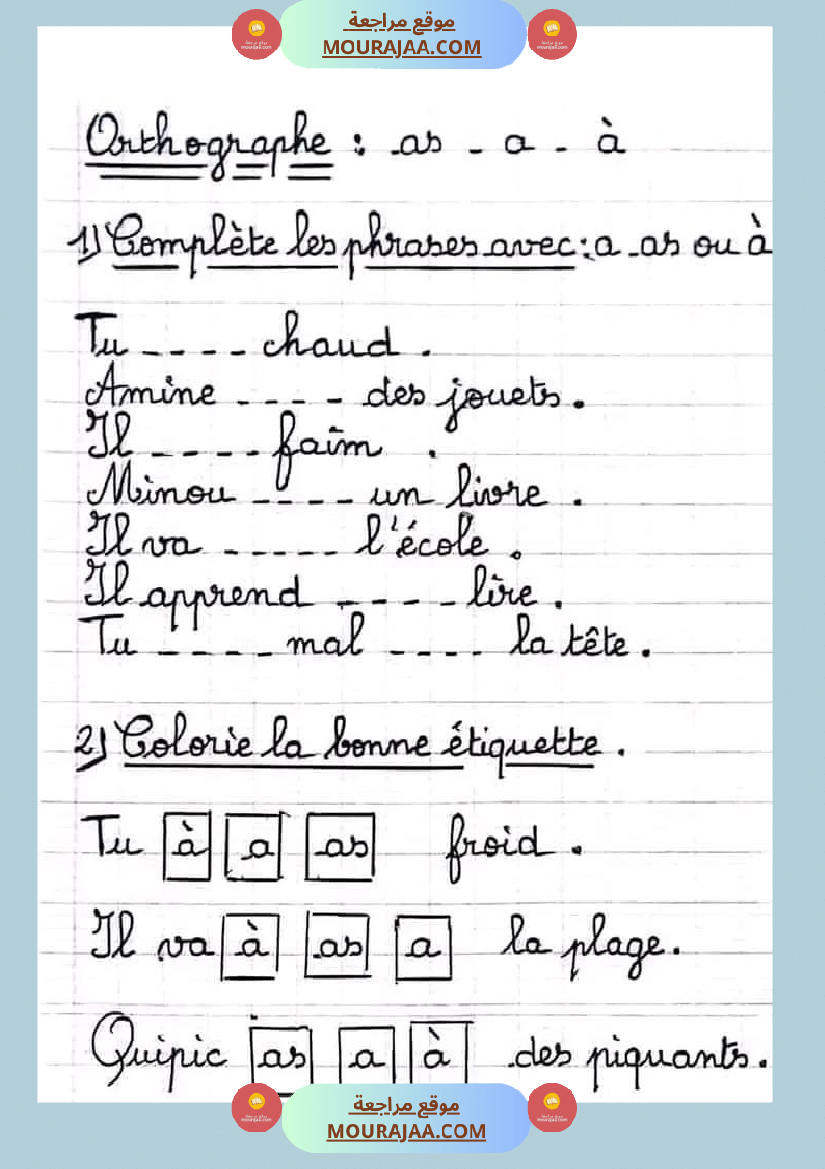 موقع مراجعة
MOURAJAA.COM
Orthographe : as - a - à
1) Complète les phrases avec : a - as ou à
Tu ---- chaud .
Amine ---- des jouets .
Il ---- faim .
Minou ---- un livre .
Il va ----- l'école .
Il apprend ---- lire .
Tu ---- mal ---- la tête .
2) Colorie la bonne étiquette .
Tu à a as froid .
Il va à as a la plage .
Quipic as a à des piquants .
موقع مراجعة
MOURAJAA.COM